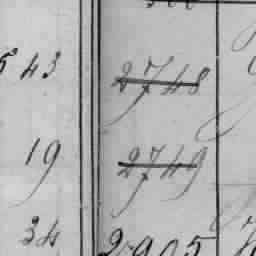 543 2748
19 2749
34 2905